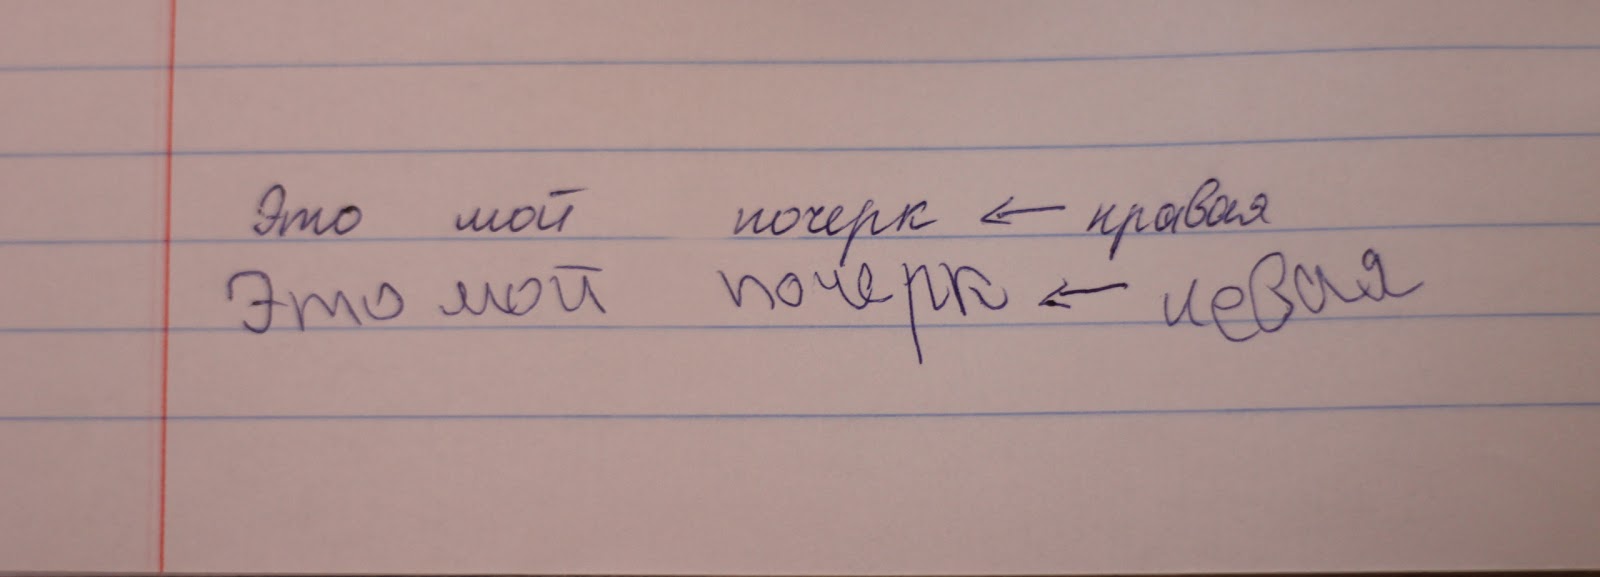 Это мой почерк ← правая
Это мой почерк ← левая